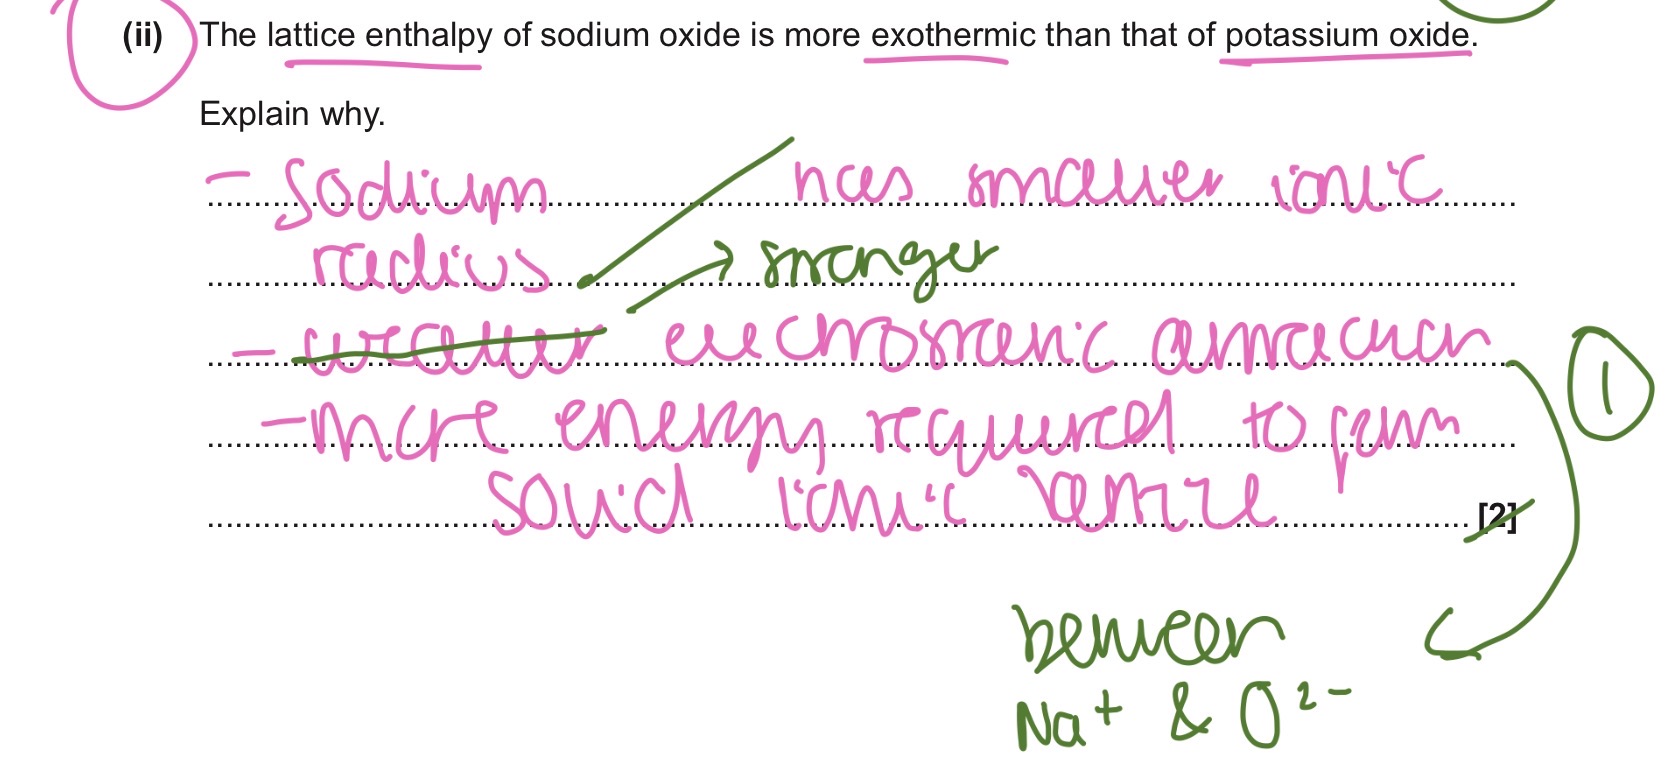 (ii) The lattice enthalpy of sodium oxide is more exothermic than that of potassium oxide.
Explain why.
- Sodium has smaller ionic
radius
→ stronger
- weaker electrostatic attraction
- more energy required to form
solid ionic lattice
[2]
1
between
Na⁺ & O²⁻